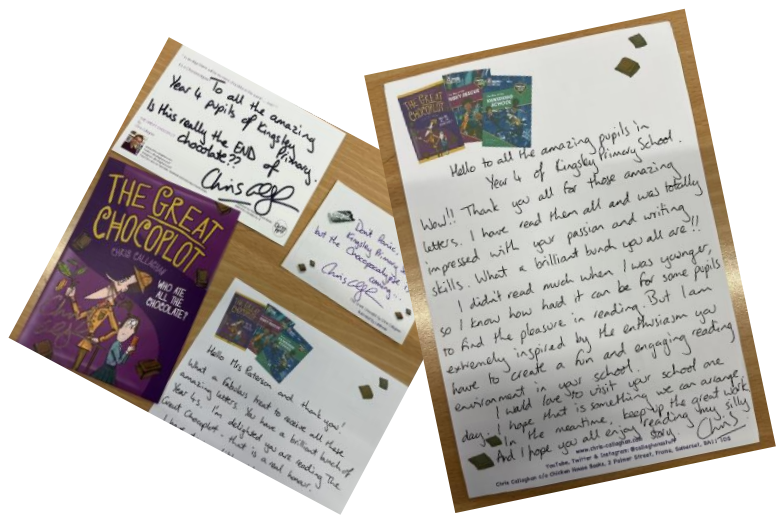 To all the amazing
Year 4 pupils of Kingsley
Primary.
Is this really the END of
chocolate??
Chris
THE GREAT
CHOCOPLOT
CHRIS CALLAGHAN
WHO ATE
ALL THE
CHOCOLATE?
Don't Panic,
Kingsley Primary,
but the Chocopocalypse is
coming...
Chris
Hello Mrs Paterson and thank you!
What a fabulous treat to receive all these
amazing letters. You have a brilliant bunch of
Year 4s. I'm delighted you are reading The
Great Chocoplot, that is a real honour.
THE GREAT
Hello to all the amazing pupils in
Year 4 of Kingsley Primary School.
Wow!! Thank you all for those amazing
letters. I have read them all and was totally
impressed with your passion and writing
skills. What a brilliant bunch you all are!!
I didn't read much when I was younger,
so I know how hard it can be for some pupils
to find the pleasure in reading. But I am
extremely inspired by the enthusiasm you
have to create a fun and engaging reading
environment in your school.
I would love to visit your school one
day. I hope that is something we can arrange.
In the meantime, keep up the great work
And I hope you all enjoy reading my silly
story
Chris
www.chris-callaghan.com
YouTube, Twitter & Instagram:
Chris Callaghan c/o Chicken House Books, 2 Palmer Street, Frome, Somerset, BA11 1DS